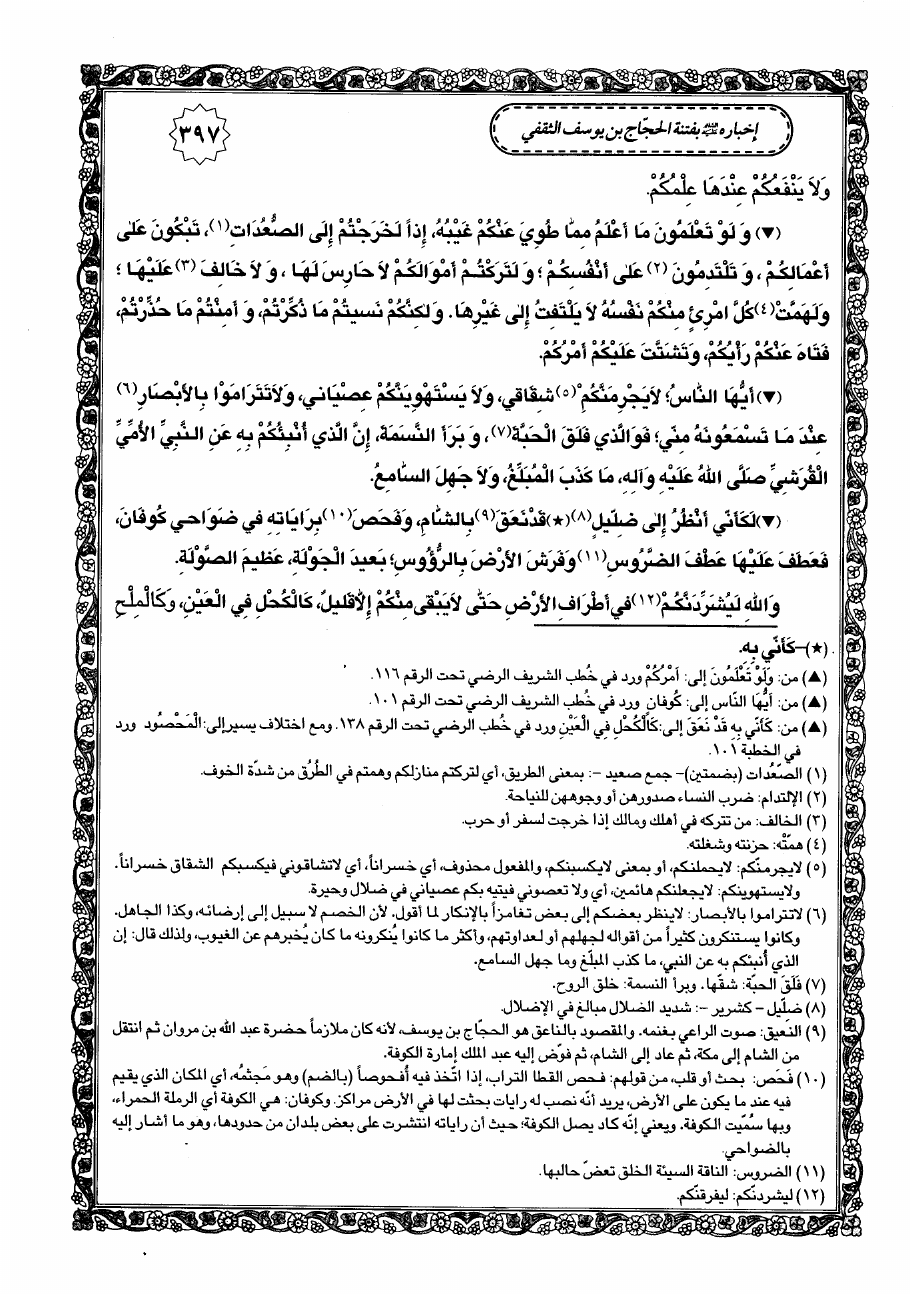 إخباره عليه السلام بفتنة الحجّاج بن يوسف الثقفي
٣٩٧
وَلاَ يَنْفَعُكُمْ عِنْدَهَا عِلْمُكُمْ.
(▼) وَ لَوْ تَعْلَمُونَ مَا أَعْلَمُ مِمَّا طُوِيَ عَنْكُمْ غَيْبُهُ، إِذاً لَخَرَجْتُمْ إِلَى الصُّعُدَاتِ(١)، تَبْكُونَ عَلىٰ
أَعْمَالِكُمْ، وَ تَلْتَدِمُونَ(٢) عَلىٰ أَنْفُسِكُمْ؛ وَ لَتَرَكْتُمْ أَمْوَالَكُمْ لاَ حَارِسَ لَهَا، وَ لاَ خَالِفَ(٣) عَلَيْهَا؛
وَلَهَمَّتْ(٤) كُلَّ امْرِئٍ مِنْكُمْ نَفْسُهُ لاَ يَلْتَفِتُ إِلىٰ غَيْرِهَا. وَ لٰكِنَّكُمْ نَسيتُمْ مَا ذُكِّرْتُمْ، وَ أَمِنْتُمْ مَا حُذِّرْتُمْ،
فَتَاهَ عَنْكُمْ رَأْيُكُمْ، وَتَشَتَّتَ عَلَيْكُمْ أَمْرُكُمْ.
(▼) أَيُّهَا النَّاسُ؛ لاَيَجْرِمَنَّكُمْ(٥) شِقَاقي، وَلاَ يَسْتَهْوِيَنَّكُمْ عِصْيَاني، وَلاَتَتَرَامَوْا بِالأَبْصَارِ(٦)
عِنْدَ مَا تَسْمَعُونَهُ مِنّي؛ فَوَالَّذي فَلَقَ الْحَبَّةَ(٧)، وَ بَرَأَ النَّسَمَةَ، إِنَّ الَّذي أُنْبِئُكُمْ بِهِ عَنِ النَّبِيِّ الأُمِّيِّ
الْقُرَشِيِّ صَلَّى اللهُ عَلَيْهِ وَآلِهِ، مَا كَذَبَ الْمُبَلِّغُ، وَلاَ جَهِلَ السَّامِعُ.
(▼) لَكَأَنّي أَنْظُرُ إِلىٰ ضِلّيلٍ(٨)(★) قَدْنَعَقَ(٩) بِالشَّامِ، وَفَحَصَ(١٠) بِرَايَاتِهِ في ضَوَاحي كُوفَانَ،
فَعَطَفَ عَلَيْهَا عَطْفَ الضَّرُوسِ(١١) وَفَرَشَ الأَرْضَ بِالرُّؤُوسِ؛ بَعيدَ الْجَوْلَةِ، عَظيمَ الصَّوْلَةِ.
وَاللهِ لَيُشَرِّدَنَّكُمْ(١٢) في أَطْرَافِ الأَرْضِ حَتّٰى لاَيَبْقىٰ مِنْكُمْ إِلاَّقَليلٌ، كَالْكُحْلِ فِي الْعَيْنِ، وَكَالْمِلْحِ
(★)-كَأَنّي بِهِ.
(▲) من: وَلَوْ تَعْلَمُونَ إلى: أَمْرُكُمْ ورد في خُطب الشريف الرضي تحت الرقم ١١٦.
(▲) من: أَيُّهَا النّاس إلى: كُوفان ورد في خُطب الشريف الرضي تحت الرقم ١٠١.
(▲) من: كَأَنّي بِهِ قَدْ نَعَقَ إلى:كَالْكُحْلِ فِي الْعَيْنِ ورد في خُطب الرضي تحت الرقم ١٣٨. ومع اختلاف يسير إلى:الْمَحْصُود ورد
في الخطبة ١٠١.
(١) الصّعُدات (بضمتين)- جمع صعيد -: بمعنى الطريق، أي لتركتم منازلكم وهمتم في الطُرُق من شدّة الخوف.
(٢) الإلتدام: ضرب النساء صدورهن أو وجوههن للنياحة.
(٣) الخالف: من تتركه في أهلك ومالك إذا خرجت لسفر أو حرب.
(٤) همتّه: حزنته وشغلته.
(٥) لايجرمنّكم: لايحملنكم، أو بمعنى لايكسبنكم، والمفعول محذوف، أي خسراناً، أي لاتشاقوني فيكسبكم الشقاق خسراناً.
ولايستهوينّكم: لايجعلنكم هائمين، أي ولا تعصوني فيتيه بكم عصياني في ضلال وحيرة.
(٦) لاتتراموا بالأبصار: لاينظر بعضكم إلى بعض تغامزاً بالإنكار لما أقول. لأن الخصم لا سبيل إلى إرضائه، وكذا الجاهل.
وكانوا يستنكرون كثيراً من أقواله لجهلهم أو لعداوتهم، وأكثر ما كانوا يُنكرونه ما كان يُخبرهم عن الغيوب، ولذلك قال: إن
الذي أُنبئكم به عن النبي، ما كذب المبلّغ وما جهل السامع.
(٧) فَلَقَ الحبّة: شقّها. وبرأ النسمة: خلق الروح.
(٨) ضلّيل - كشرير -: شديد الضلال مبالغ في الإضلال.
(٩) النّعيق: صوت الراعي بغنمه. والمقصود بالناعق هو الحجّاج بن يوسف، لأنه كان ملازماً حضرة عبد الله بن مروان ثم انتقل
من الشام إلى مكة، ثم عاد إلى الشام، ثم فوّض إليه عبد الملك إمارة الكوفة.
(١٠) فَحَص: بحث أو قلب، من قولهم: فحص القطا التراب، إذا اتّخذ فيه أُفحوصاً (بالضم) وهو مَجثمُه، أي المكان الذي يقيم
فيه عند ما يكون على الأرض، يريد أنّه نصب له رايات بحثت لها في الأرض مراكز. وكوفان: هي الكوفة أي الرملة الحمراء،
وبها سُمّيت الكوفة. ويعني إنّه كاد يصل الكوفة؛ حيث أن راياته انتشرت على بعض بلدان من حدودها، وهو ما أشار إليه
بالضواحي.
(١١) الضروس: الناقة السيئة الخلق تعضّ حالبها.
(١٢) ليشردنّكم: ليفرقنّكم.